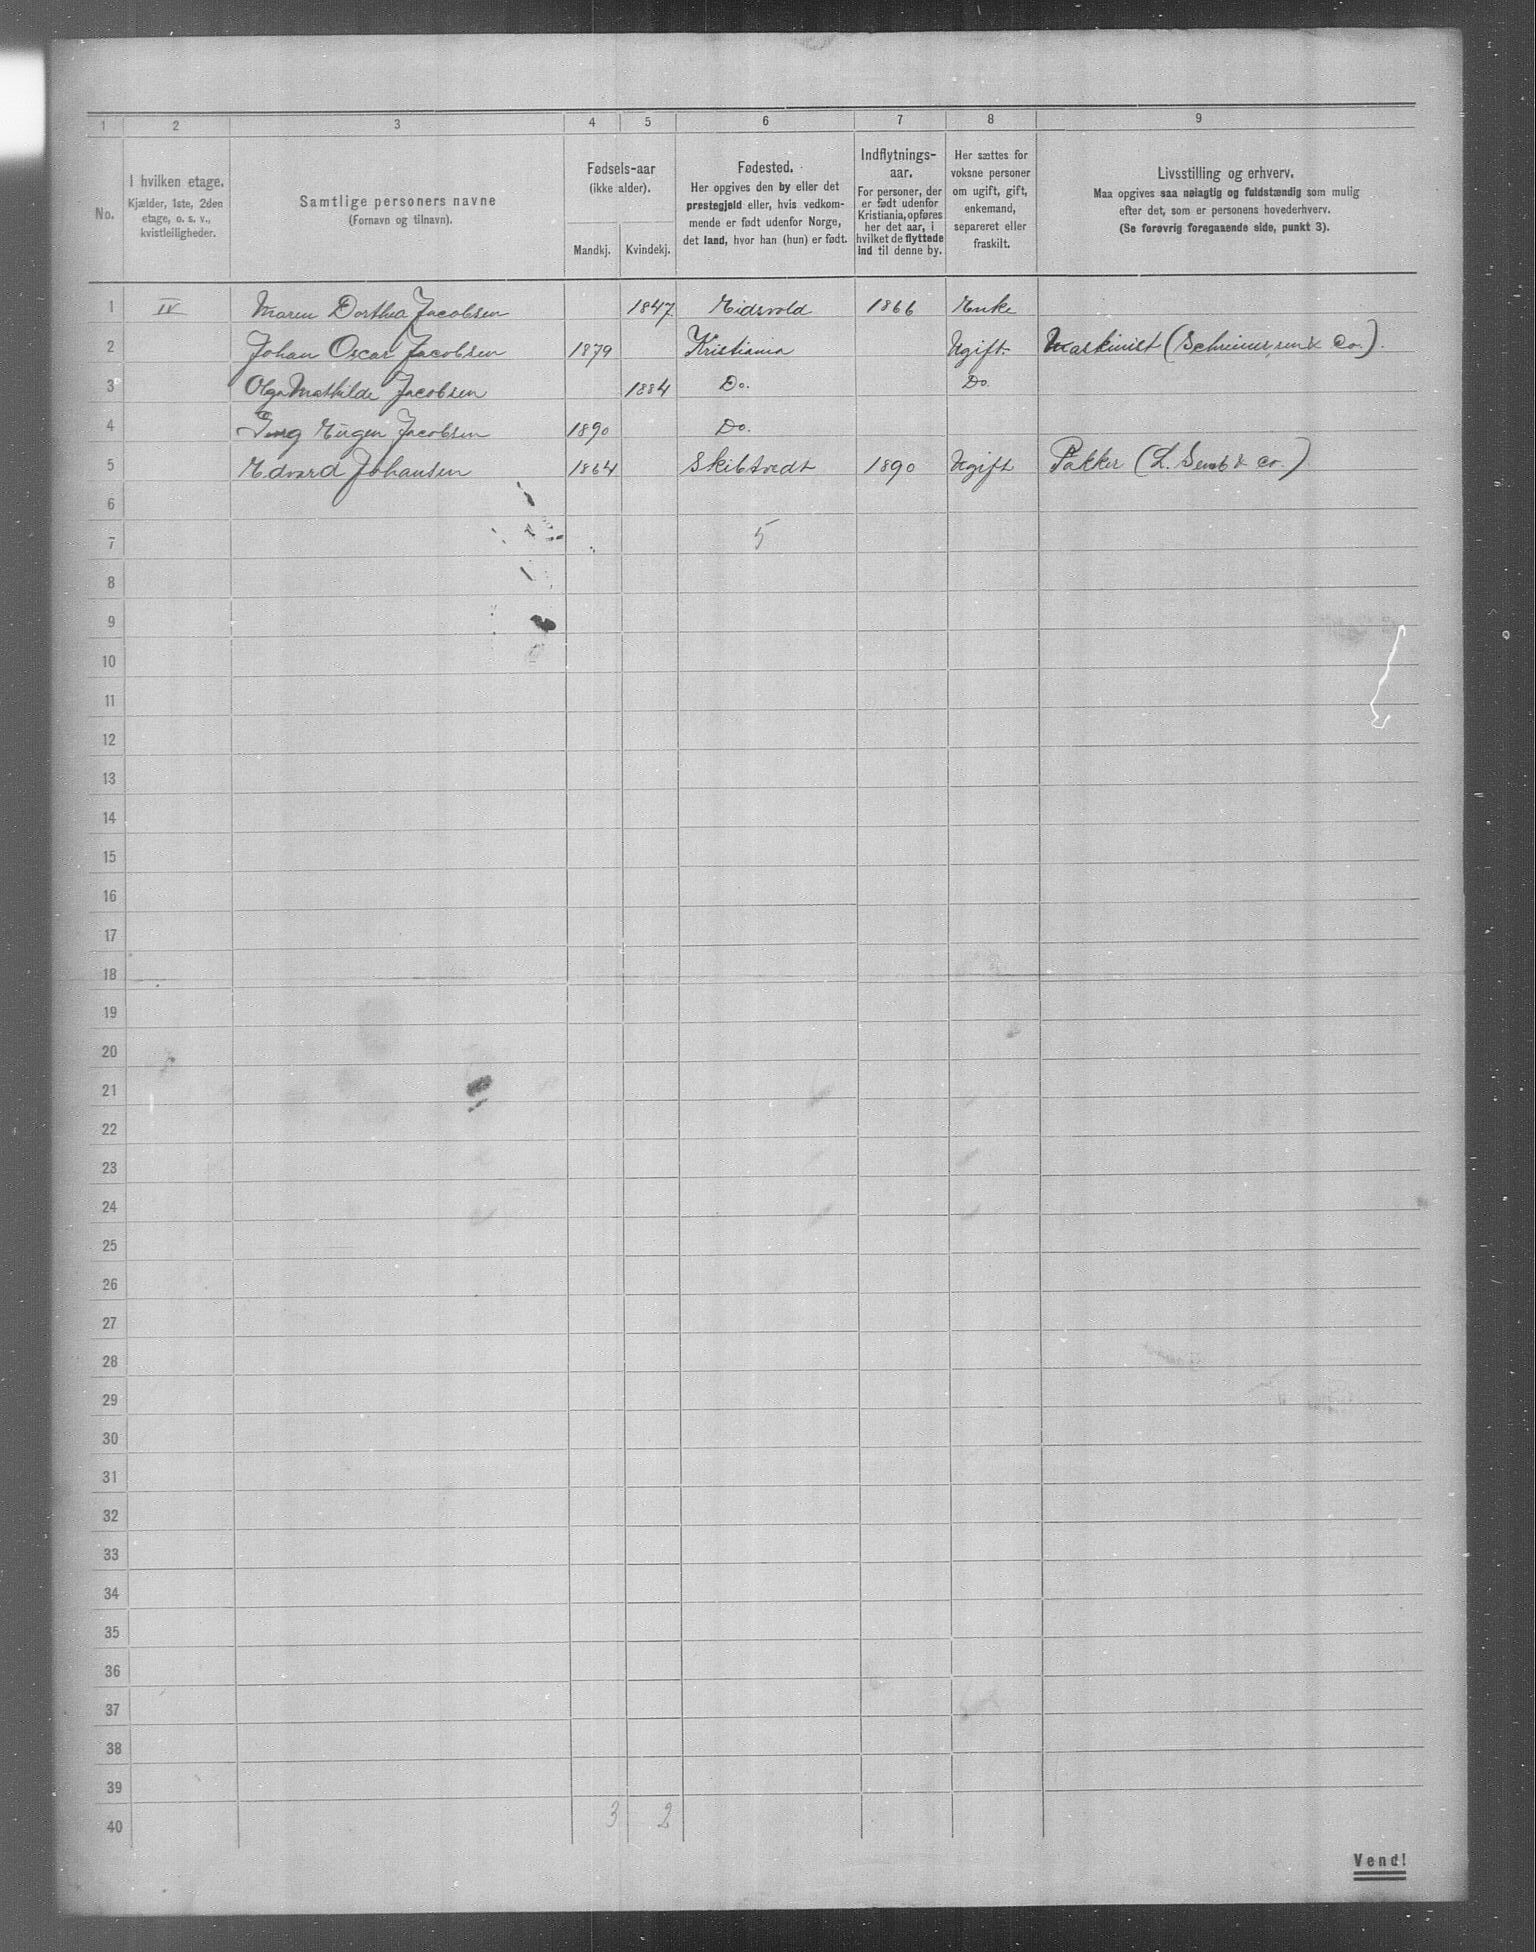 1 2 3 4 5 6 7 8 9
No.
I hvilken etage.
Kjælder, 1ste, 2den
etage, o. s. v.,
kvistleiligheder.
Samtlige personers navne
(Fornavn og tilnavn).
Fødsels-aar
(ikke alder).
Mandkj. Kvindekj.
Fødested.
Her opgives den by eller det
prestegjeld eller, hvis vedkom-
mende er født udenfor Norge,
det land, hvor han (hun) er født.
Indflytnings-
aar.
For personer, der
er født udenfor
Kristiania, opføres
her det aar, i
hvilket de flyttede
ind til denne by.
Her sættes for
voksne personer
om ugift, gift,
enkemand,
separeret eller
fraskilt.
Livsstilling og erhverv.
Maa opgives saa nøiagtig og fuldstændig som mulig
efter det, som er personens hovederhverv.
(Se forøvrig foregaaende side, punkt 3).
1 IV Maren Dorthea Jacobsen 1847 Eidsvold 1866 Enke
2 Johan Oscar Jacobsen 1879 Kristiania Ugift Maskinist (Schreiner, sen & Co.).
3 Olga Mathilde Jacobsen 1884 Do. Do.
4 Eugen Jacobsen 1890 Do.
5 Edvard Johansen 1864 Skibtvedt 1890 Ugift Pakker (L. & Co.)
6
7 5
8
9
10
11
12
13
14
15
16
17
18
19
20
21
22
23
24
25
26
27
28
29
30
31
32
33
34
35
36
37
38
39
40 3 2
Vend!